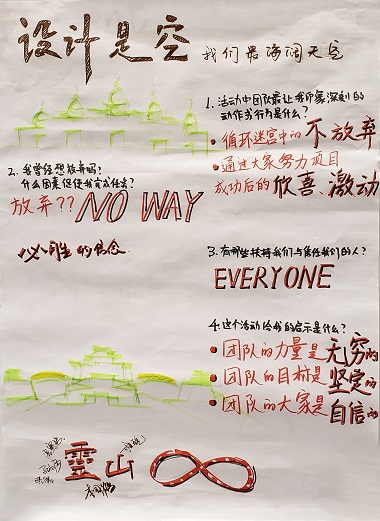 设计是空
我们最海阔天空
1. 活动中团队最让我印象深刻的
动作或行为是什么?
• 循环迷宫中的不放弃
• 通过大家努力项目
成功后的欣喜、激动
2. 我曾经想放弃吗?
什么因素促使我完成任务?
放弃?? NO WAY
必胜的信念
3. 有哪些扶持我们与信任我们的人?
EVERYONE
4. 这个活动给我的启示是什么?
• 团队的力量是无穷的
• 团队的目标是坚定的
• 团队的大家是自信的
靈山